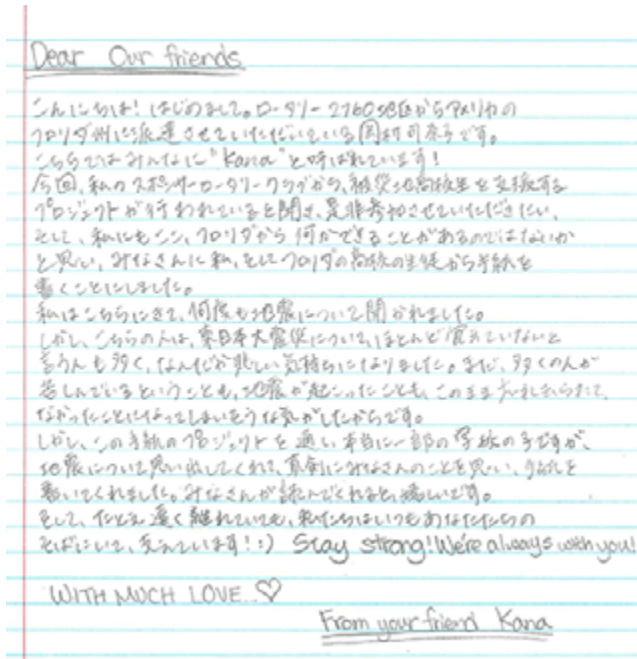 Dear Our friends
こんにちは! はじめまして。ロータリー2760地区からアメリカの
フロリダ州に派遣させていただいている岡村可奈子です。
こちらではみんなに"Kana"と呼ばれています!
今回、私のスポンサーロータリークラブから、被災地高校生を支援する
プロジェクトが行われていると聞き、是非参加させていただきたい、
そして、私にもここ、フロリダから何かできることがあるのではないか
と思い、みなさんに私、そしてフロリダの高校の生徒から手紙を
書くことにしました。
私はこちらにきて、何度も地震について聞かれました。
しかし、こちらの人は、東日本大震災について、ほとんど覚えていないと
言う人も多く、なんだか悲しい気持ちになりました。まだ、多くの人が
苦しんでいるということも、地震が起こったことも、このまま忘れ去られて、
なかったことになってしまいそうな気がしたからです。
しかし、この手紙のプロジェクトを通し、本当に一部の学校の子ですが、
地震について思い出してくれて、真剣にみなさんのことを思い、手紙を
書いてくれました。みなさんが読んでくれると、嬉しいです。
そして、たとえ遠く離れていても、私たちはいつもあなたたちの
そばにいて、支えています! :) Stay strong! We're always with you!
WITH MUCH LOVE..♡
From your friend Kana